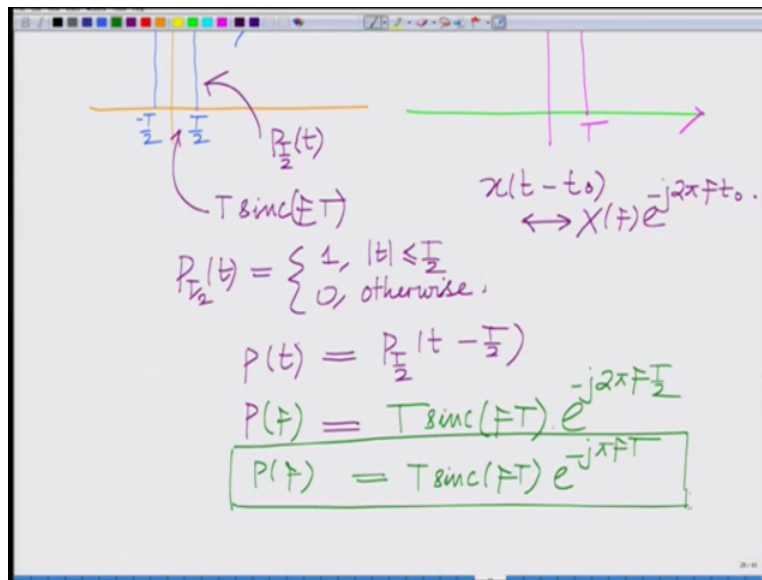 -T/2 T/2
P_{T/2}(t)
T sinc(FT)
T
x(t-t₀)
↔ X(F)e^{-j2πFt₀}.
P_{T/2}(t) = { 1, |t| ≤ T/2
0, otherwise.
P(t) = P_{T/2}(t - T/2)
P(F) = T sinc(FT). e^{-j2πF T/2}
P(F) = T sinc(FT) e^{-jπFT}